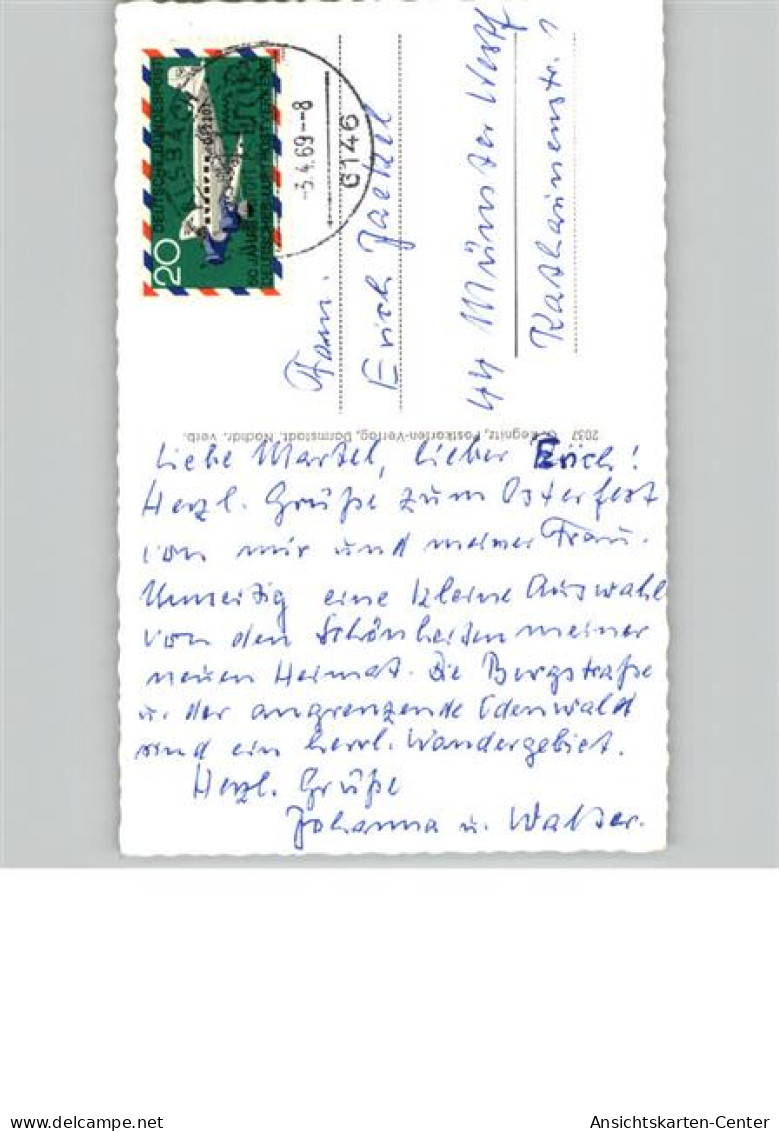 DEUTSCHE BUNDESPOST
20
50 JAHRE
DEUTSCHER LUFTPOSTVERKEHR
-3.4.69--8
6146
Fam.
Erich Jaekel
44 Münster Westf
2037 G. Segnitz, Postkarten-Verlag, Darmstadt, Nachdr. verb.
Liebe Martel, lieber Erich!
Herzl. Grüße zum Osterfest
von mir und meiner Frau.
Umseitig eine kleine Auswahl
von den Schönheiten meiner
neuen Heimat. Die Bergstraße
u. der angrenzende Odenwald
sind ein herrl. Wandergebiet.
Herzl. Grüße
Johanna u. Walter.
oldthing.net
Ansichtskarten-Center